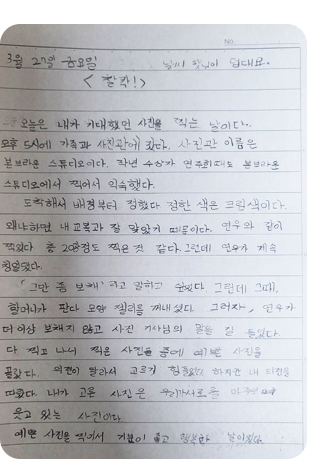 No.
3월 27일 금요일 날씨: 햇님이 덥대요.
< 찰칵! >
오늘은 내가 기대했던 사진을 찍는 날이다.
오후 5시에 가족과 사진관에 갔다. 사진관 이름은
본브라운 스튜디오이다. 작년 연주회때도 본브라운
스튜디오에서 찍어서 익숙했다.
도착해서 배경부터 정했다 정한 색은 크림색이다.
왜냐하면 내 교복과 잘 맞았기 때문이다. 연우와 같이
찍었다 총 20장정도 찍은것 같다. 그런데 연우가 계속
칭얼댔다.
「그만 좀 보채」라고 말하고 싶었다 그런데 그때,
할머니가 판다 모양 젤리를 꺼내셨다. 그러자, 연우가
더이상 보채지 않고 사진 기사님의 말을 잘 들었다.
다 찍고 나서 찍은 사진들 중에 예쁜 사진을
골랐다. 의견이 달라서 고르기 힘들었지 하지만 내 의견을
따랐다. 내가 고른 사진은 우리가 서로를
웃고 있는 사진이다
예쁜 사진을 찍어서 기분이 좋고 행복한 날이었다.